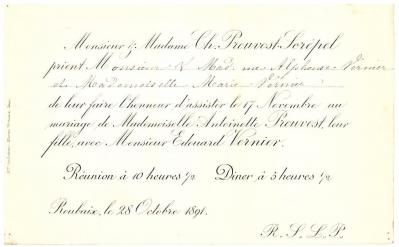 Monsieur & Madame Ch. Prouvost-Scrépel
prient Monsieur & Madame Alphonse Vernier
et Mademoiselle Marie Vernier
de leur faire l'honneur d'assister le 17 Novembre au
mariage de Mademoiselle Antoinette Prouvost, leur
fille, avec Monsieur Edouard Vernier.
Réunion à 10 heures 1/2 Dîner à 5 heures 1/2
Roubaix, le 28 Octobre 1891.
R. S. L. P.